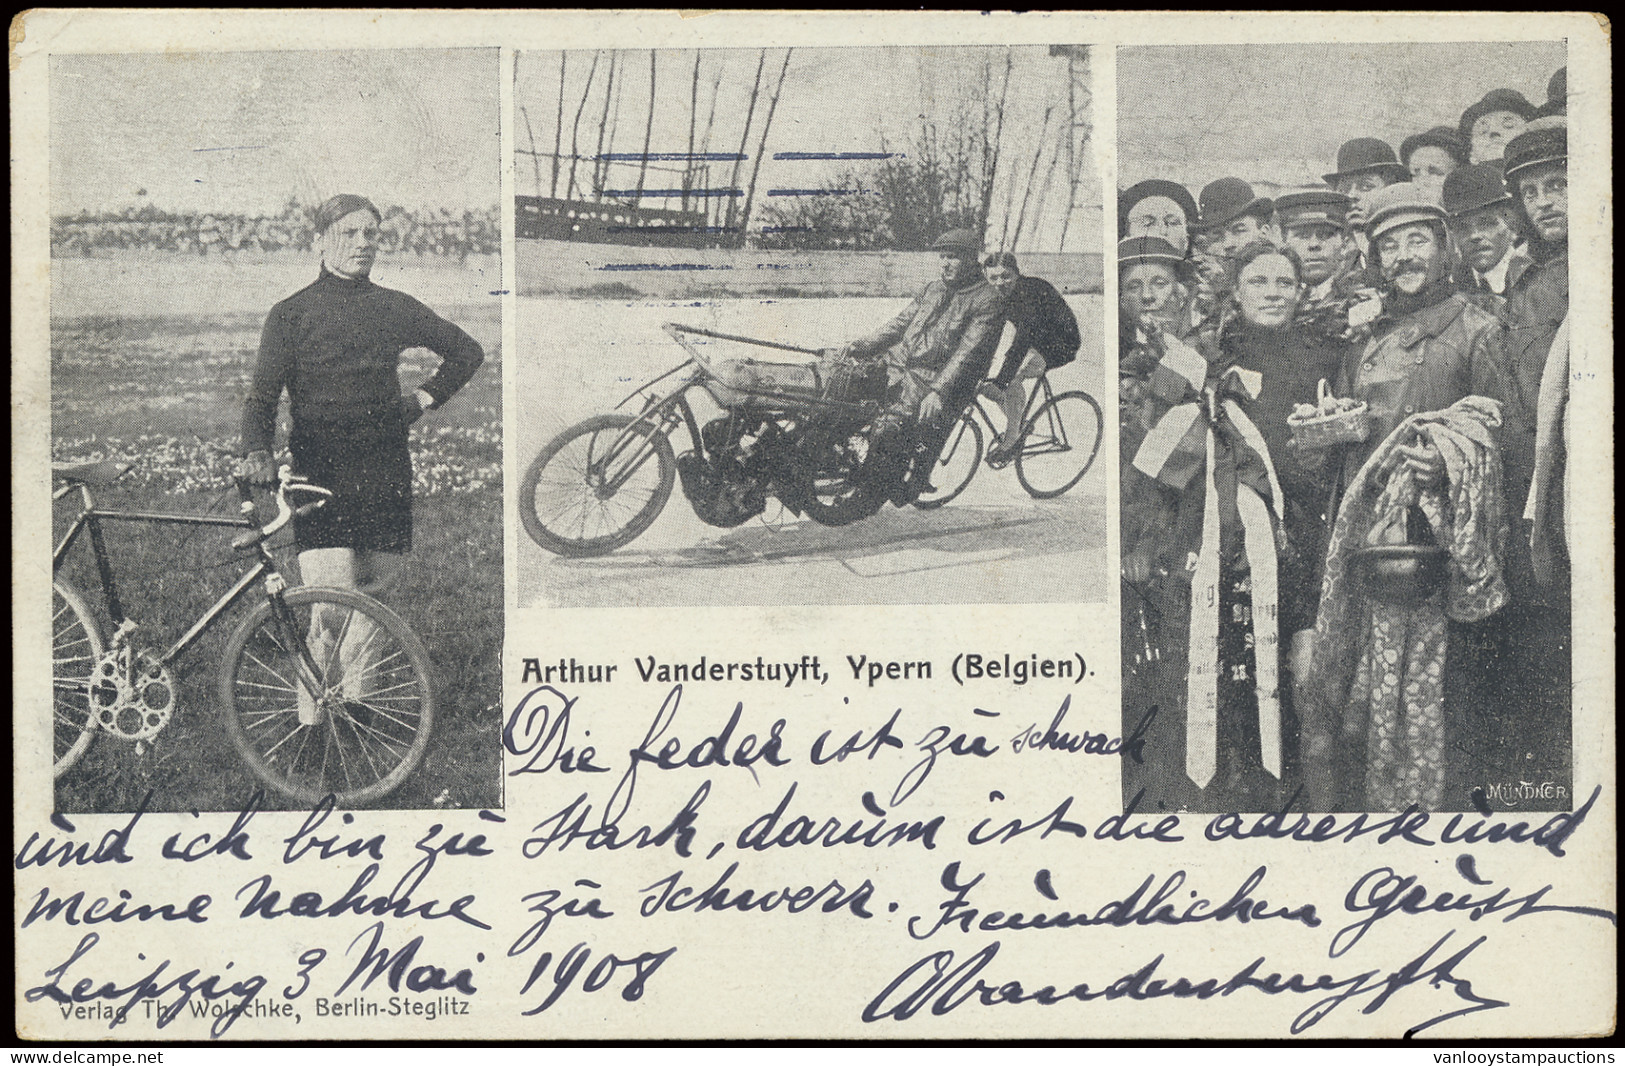 Arthur Vanderstuyft, Ypern (Belgien).
MÜNDNER
Die feder ist zu schwach
und ich bin zu stark, darum ist die adresse und
meine Nahme zu schwerr. Freundlichen Grüsst
Leipzig 3 Mai 1908 AVanderstuyft
Verlag Th. Wolschke, Berlin-Steglitz
www.delcampe.net
vanlooystampauctions